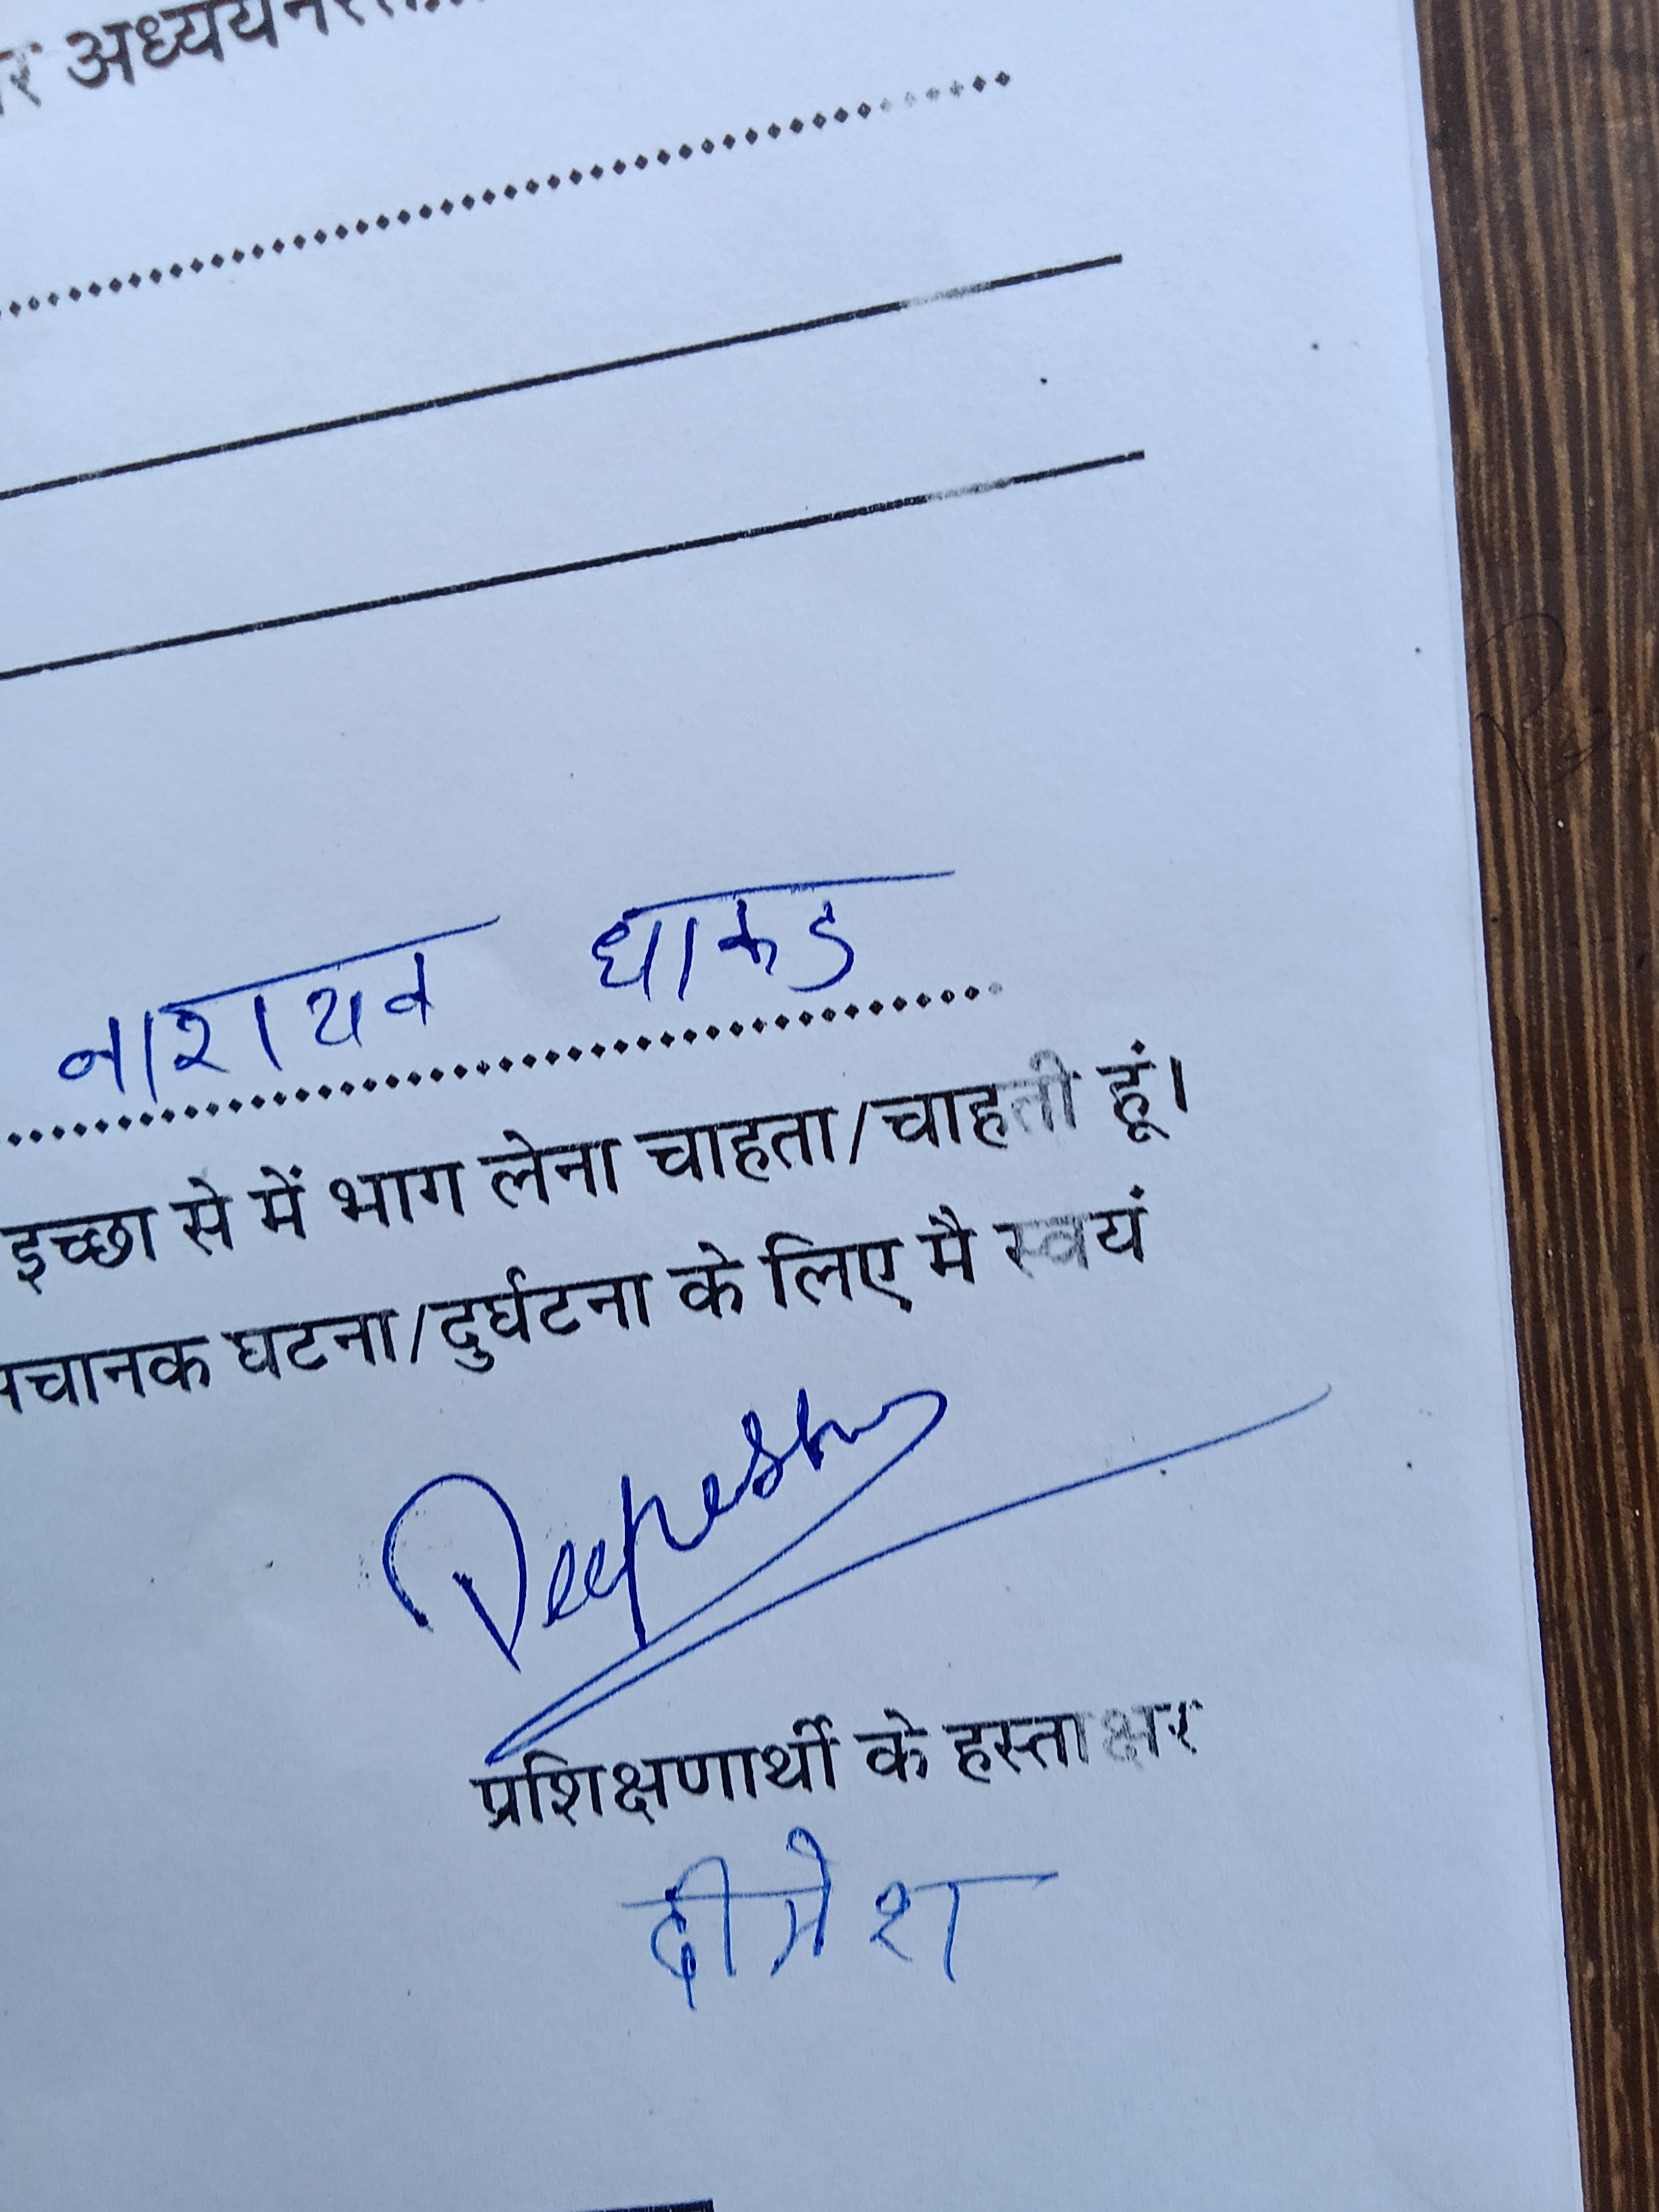 र अध्ययनरत
नारायन धाकड
इच्छा से में भाग लेना चाहता/चाहती हूं।
चानक घटना/दुर्घटना के लिए मै स्वयं
Deepesh
प्रशिक्षणार्थी के हस्ताक्षर